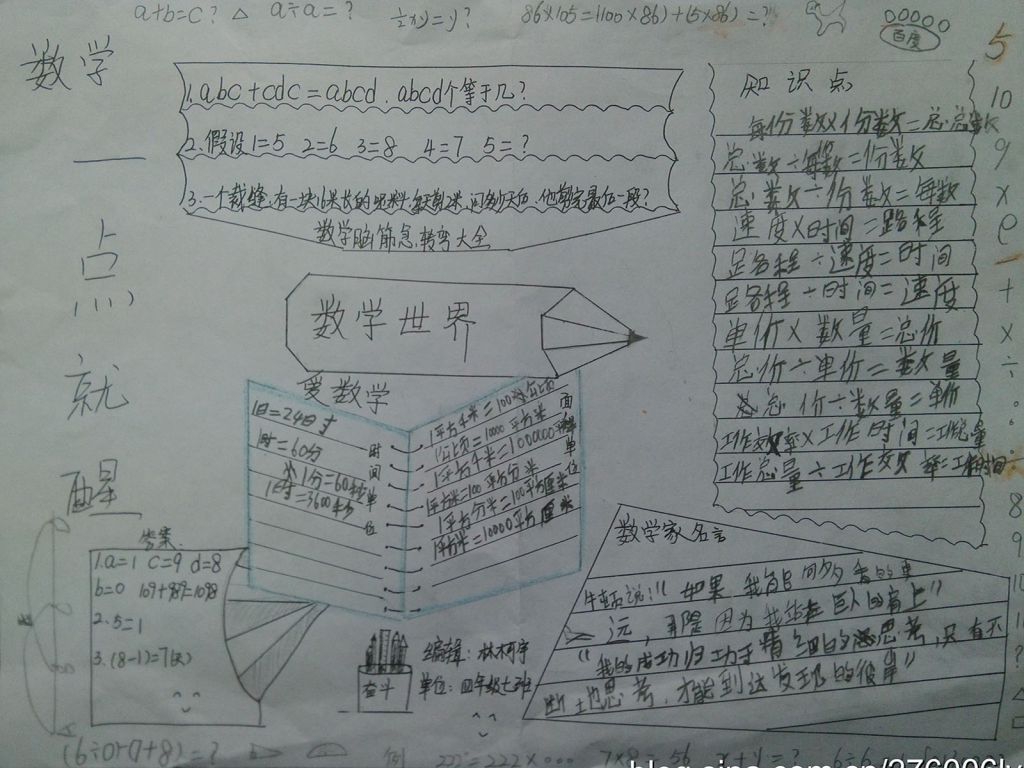 a+b=c? △ a÷a=?
86×105=(100×86)+(5×86)=?
百度
数学
一
点
就
醒
1.abc+cdc=abcd.abcd个等于几?
2.假设1=5 2=6 3=8 4=7 5=?
3.一个裁缝,有一块16米长的呢料,每天剪2米,问多少天后,他剪完最后一段?
数学脑筋急转弯大全
知识点
每份数×份数=总
总数÷每份数=份数
总数÷份数=每份数
速度×时间=路程
路程÷速度=时间
路程÷时间=速度
单价×数量=总价
总价÷单价=数量
总价÷数量=单价
工作效率×工作时间=工作总量
工作总量÷工作效率=工作时间
5
10
9
×
+
×
÷
8
9
数学世界
爱数学
1日=24时
1时=60分
1分=60秒
1时=3600秒
时间单位
1平方千米=100公顷
1公顷=10000平方米
1平方千米=1000000平方米
1平方米=100平方分米
1平方分米=100平方厘米
1平方米=10000平方厘米
面积单位
答案:
1.a=1 c=9 d=8
b=0 109+989=1098
2.5=1
3.(8-1)=7(天)
奋斗
编辑:林柯宇
单位:四年级七班
数学家名言
牛顿说:"如果,我看
远,
因为我站在巨人的肩上"
"我的成功归功于精细的思考,只有不
断地思考,才能到达发现的彼岸"
例 222=222×
7×8=56 x+y=?
blog.sina.com.cn/276006ly